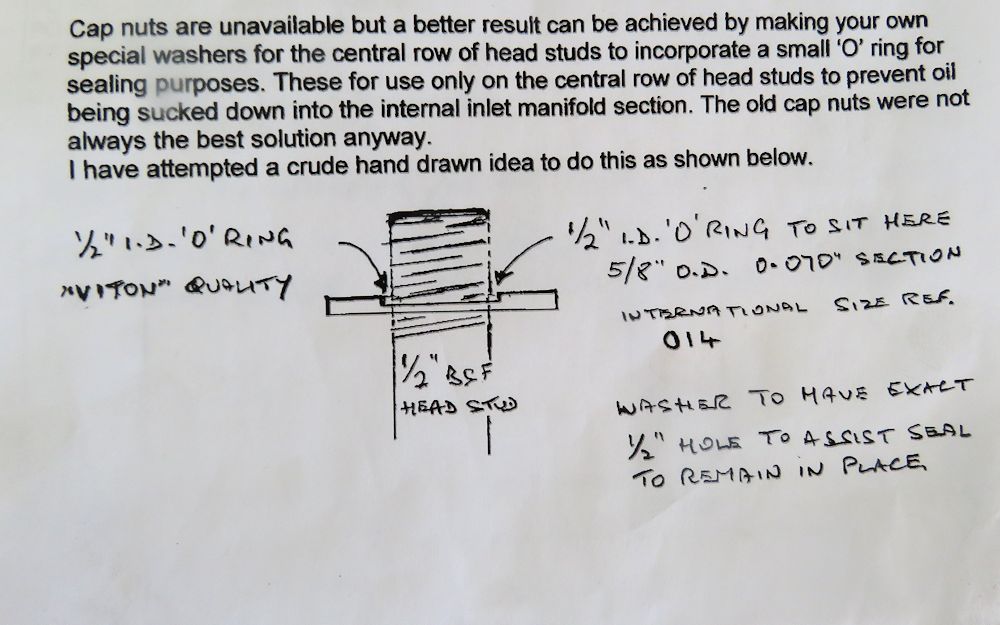 Cap nuts are unavailable but a better result can be achieved by making your own
special washers for the central row of head studs to incorporate a small 'O' ring for
sealing purposes. These for use only on the central row of head studs to prevent oil
being sucked down into the internal inlet manifold section. The old cap nuts were not
always the best solution anyway.
I have attempted a crude hand drawn idea to do this as shown below.
1/2" I.D. 'O' RING
"VITON" QUALITY
1/2" I.D. 'O' RING TO SIT HERE
5/8" O.D. 0.070" SECTION
INTERNATIONAL SIZE REF.
014
1/2" BSF
HEAD STUD
WASHER TO HAVE EXACT
1/2" HOLE TO ASSIST SEAL
TO REMAIN IN PLACE